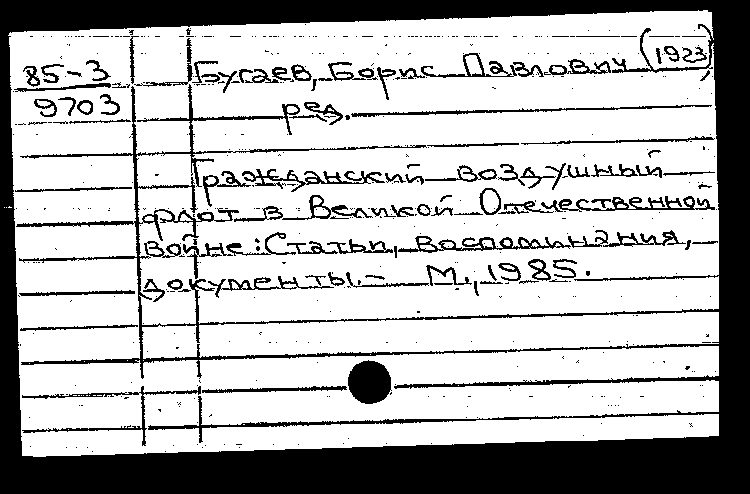 85-3
9703
Бугаев, Борис Павлович (1923)
ред.
Гражданский воздушный
флот в Великой Отечественной
войне: Статьи, воспоминания,
документы.- М., 1985.